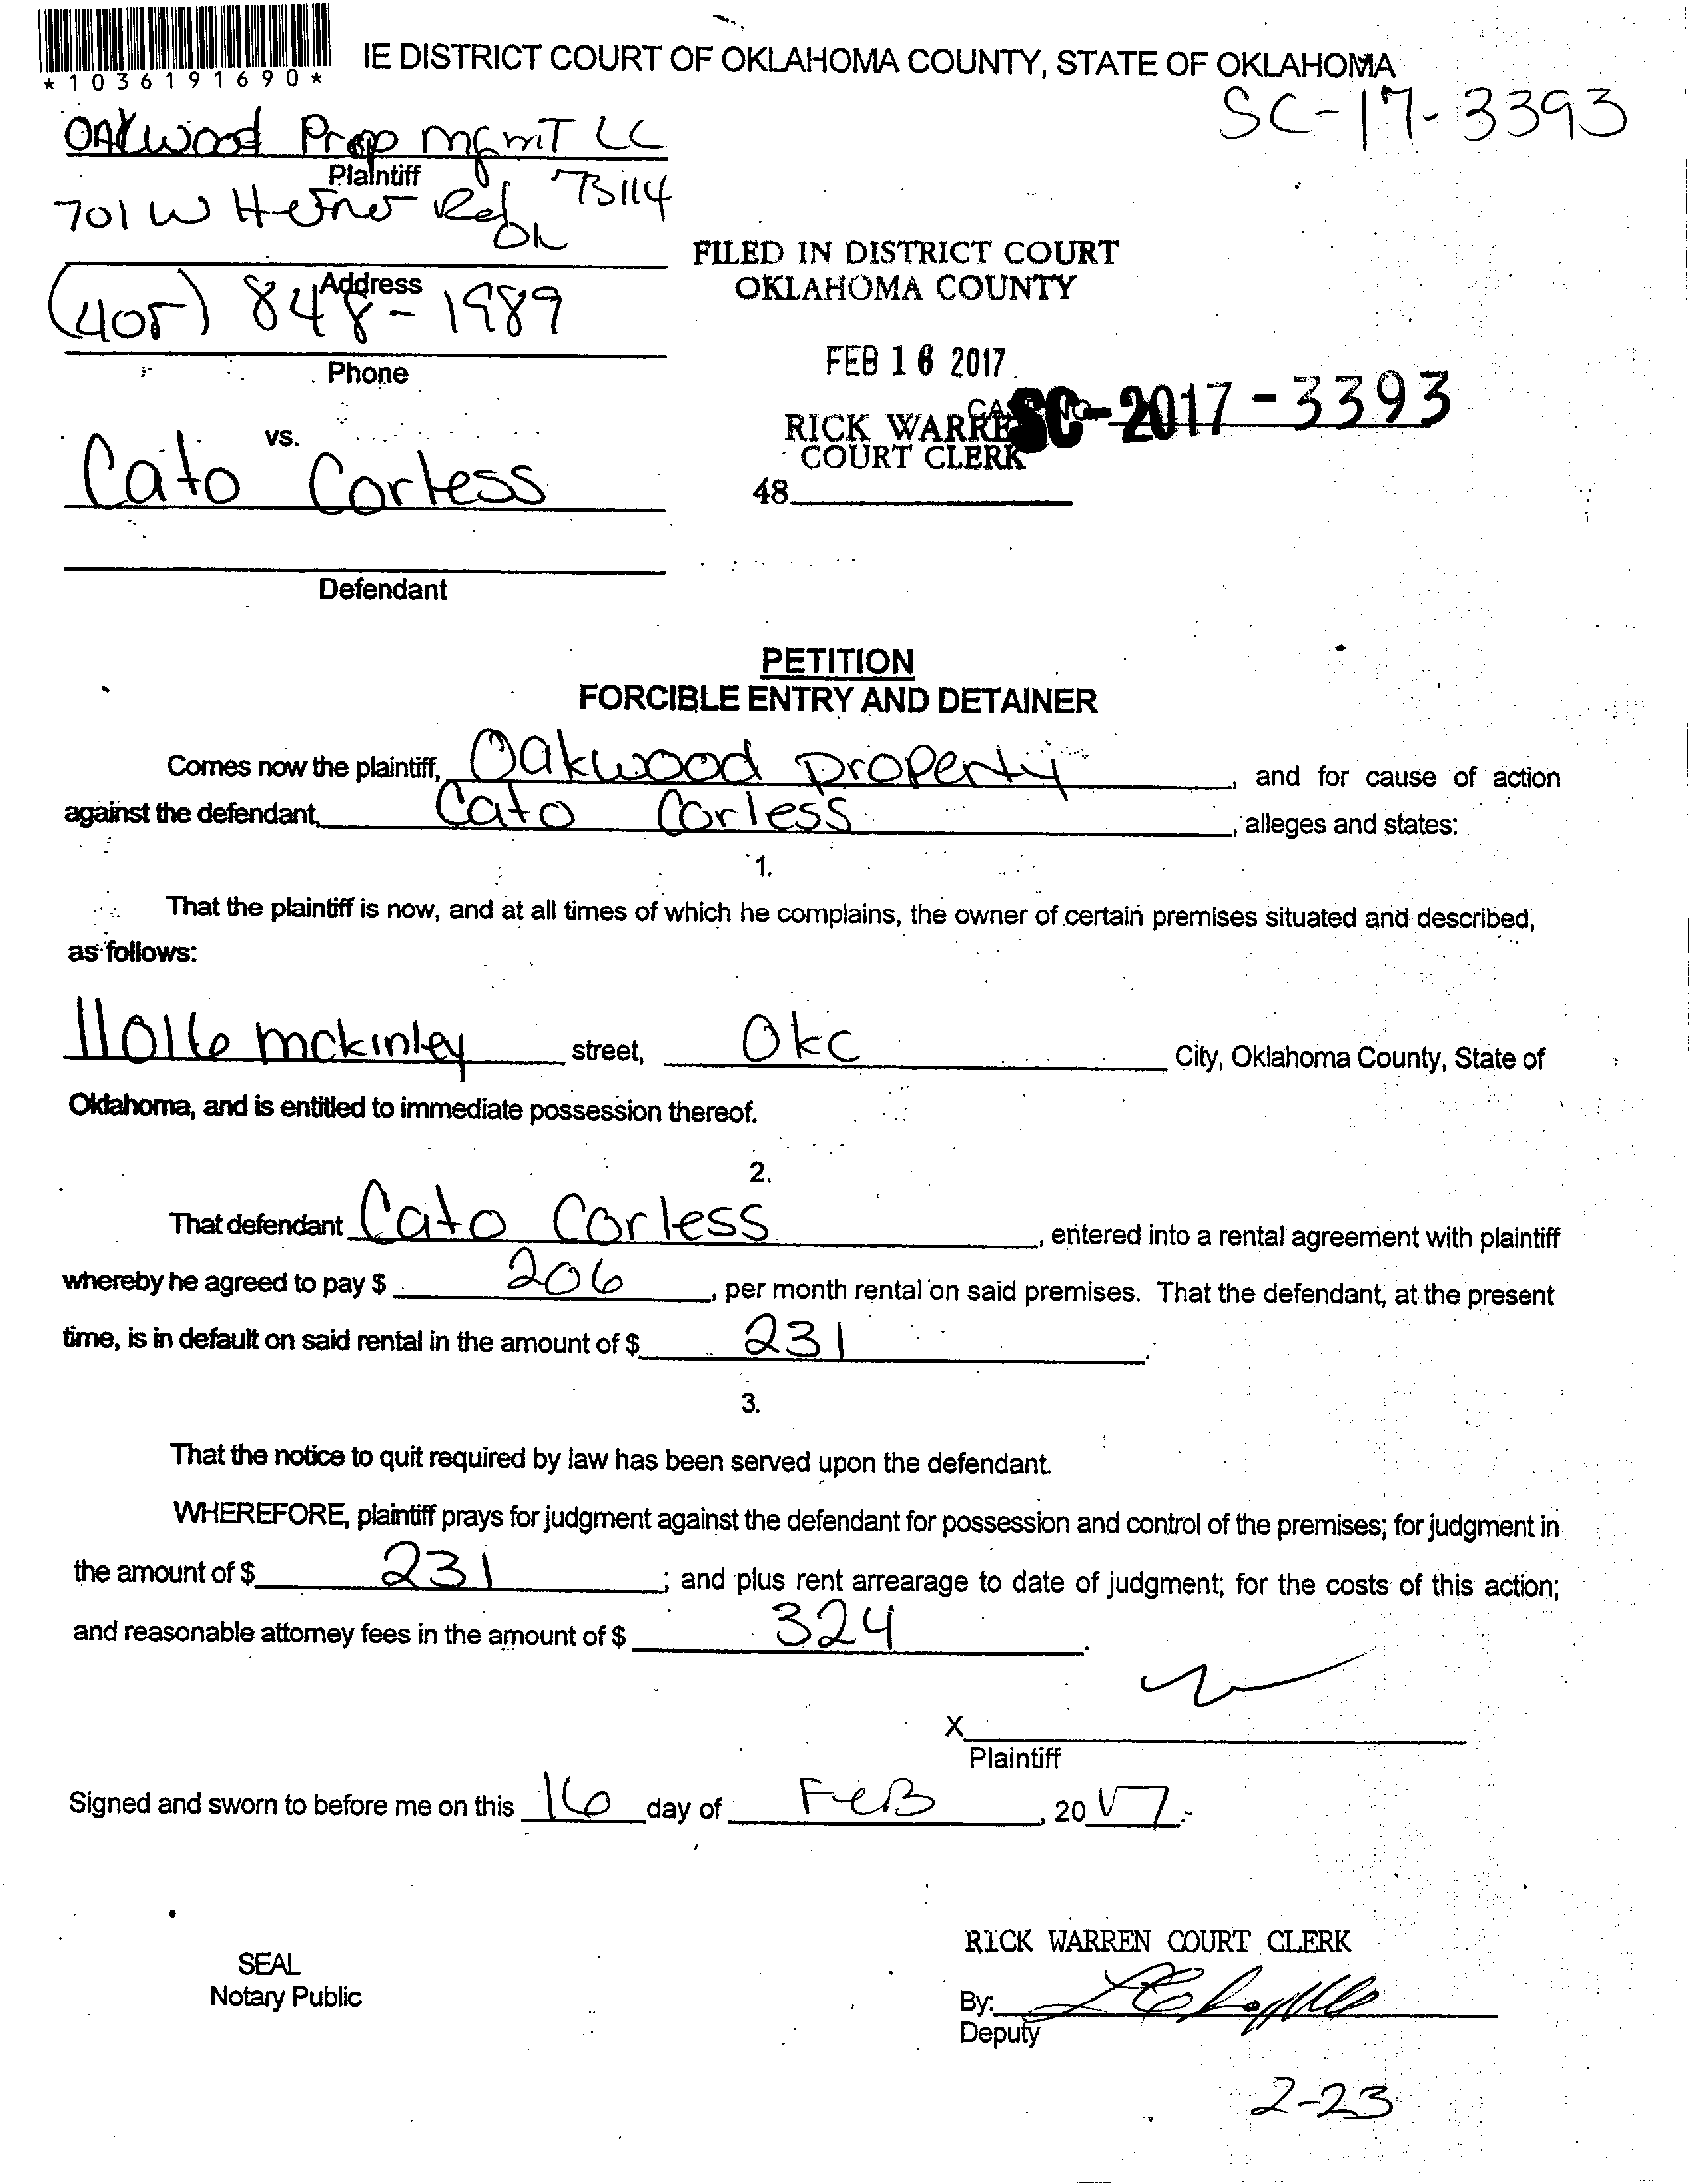 *1036191690*
IE DISTRICT COURT OF OKLAHOMA COUNTY, STATE OF OKLAHOMA
SC-17-3393
OAKwood Prop mgmT LC
Plaintiff
701 W Hefner Rd 73114
OK
Address
(405) 848-1989
Phone
FILED IN DISTRICT COURT
OKLAHOMA COUNTY
FEB 16 2017
SC-2017-3393
RICK WARREN
COURT CLERK
48
vs.
Cato Corless
Defendant
PETITION
FORCIBLE ENTRY AND DETAINER
Comes now the plaintiff, Oakwood property, and for cause of action
against the defendant, Cato Corless, alleges and states:
1.
That the plaintiff is now, and at all times of which he complains, the owner of certain premises situated and described,
as follows:
11016 mckinley street, Okc City, Oklahoma County, State of
Oklahoma, and is entitled to immediate possession thereof.
2.
That defendant Cato Corless, entered into a rental agreement with plaintiff
whereby he agreed to pay $ 206, per month rental on said premises. That the defendant, at the present
time, is in default on said rental in the amount of $ 231.
3.
That the notice to quit required by law has been served upon the defendant.
WHEREFORE, plaintiff prays for judgment against the defendant for possession and control of the premises; for judgment in
the amount of $ 231; and plus rent arrearage to date of judgment; for the costs of this action;
and reasonable attorney fees in the amount of $ 324.
X
Plaintiff
Signed and sworn to before me on this 16 day of FeB, 2017.
SEAL
Notary Public
RICK WARREN COURT CLERK
By:
Deputy
2-23